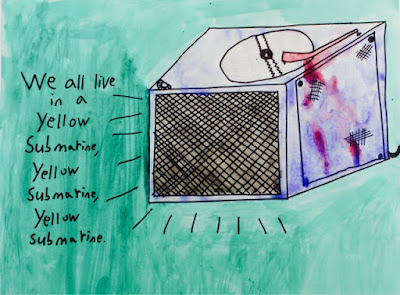 We all live
in a
Yellow
Submarine,
Yellow
Submarine,
Yellow
Submarine.